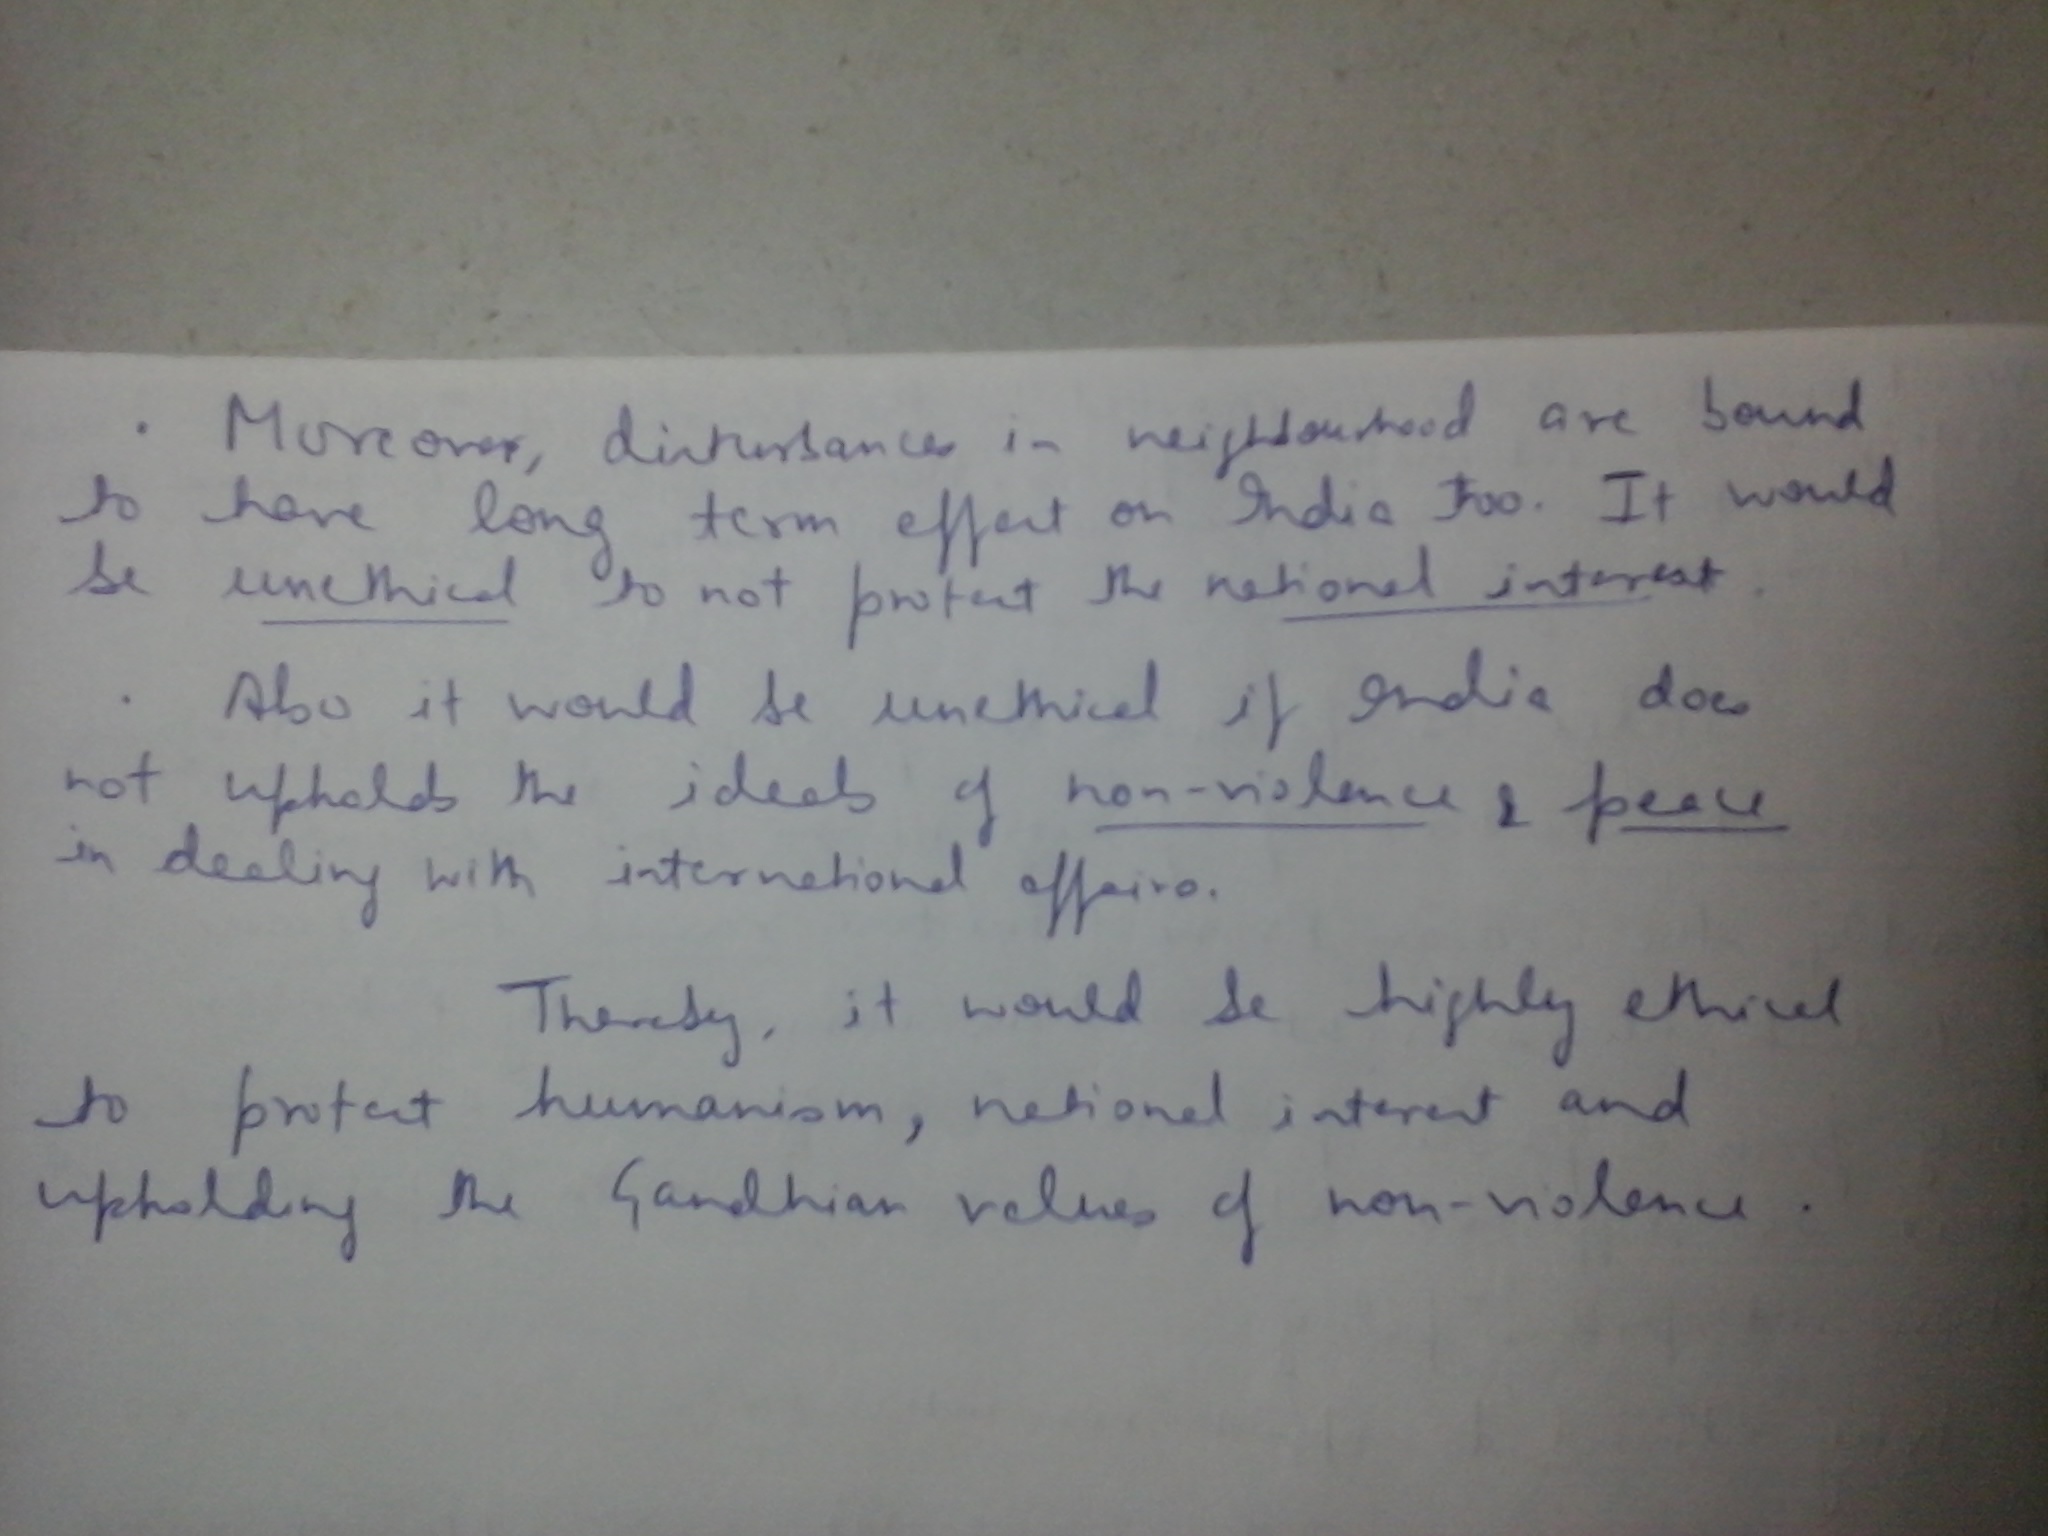 · Moreover, disturbances in neighbourhood are bound
to have long term effect on India too. It would
be unethical to not protect the national interest.
· Also it would be unethical if India does
not upholds the ideals of non-violence & peace
in dealing with international affairs.
Thereby, it would be highly ethical
to protect humanism, national interest and
upholding the Gandhian values of non-violence.